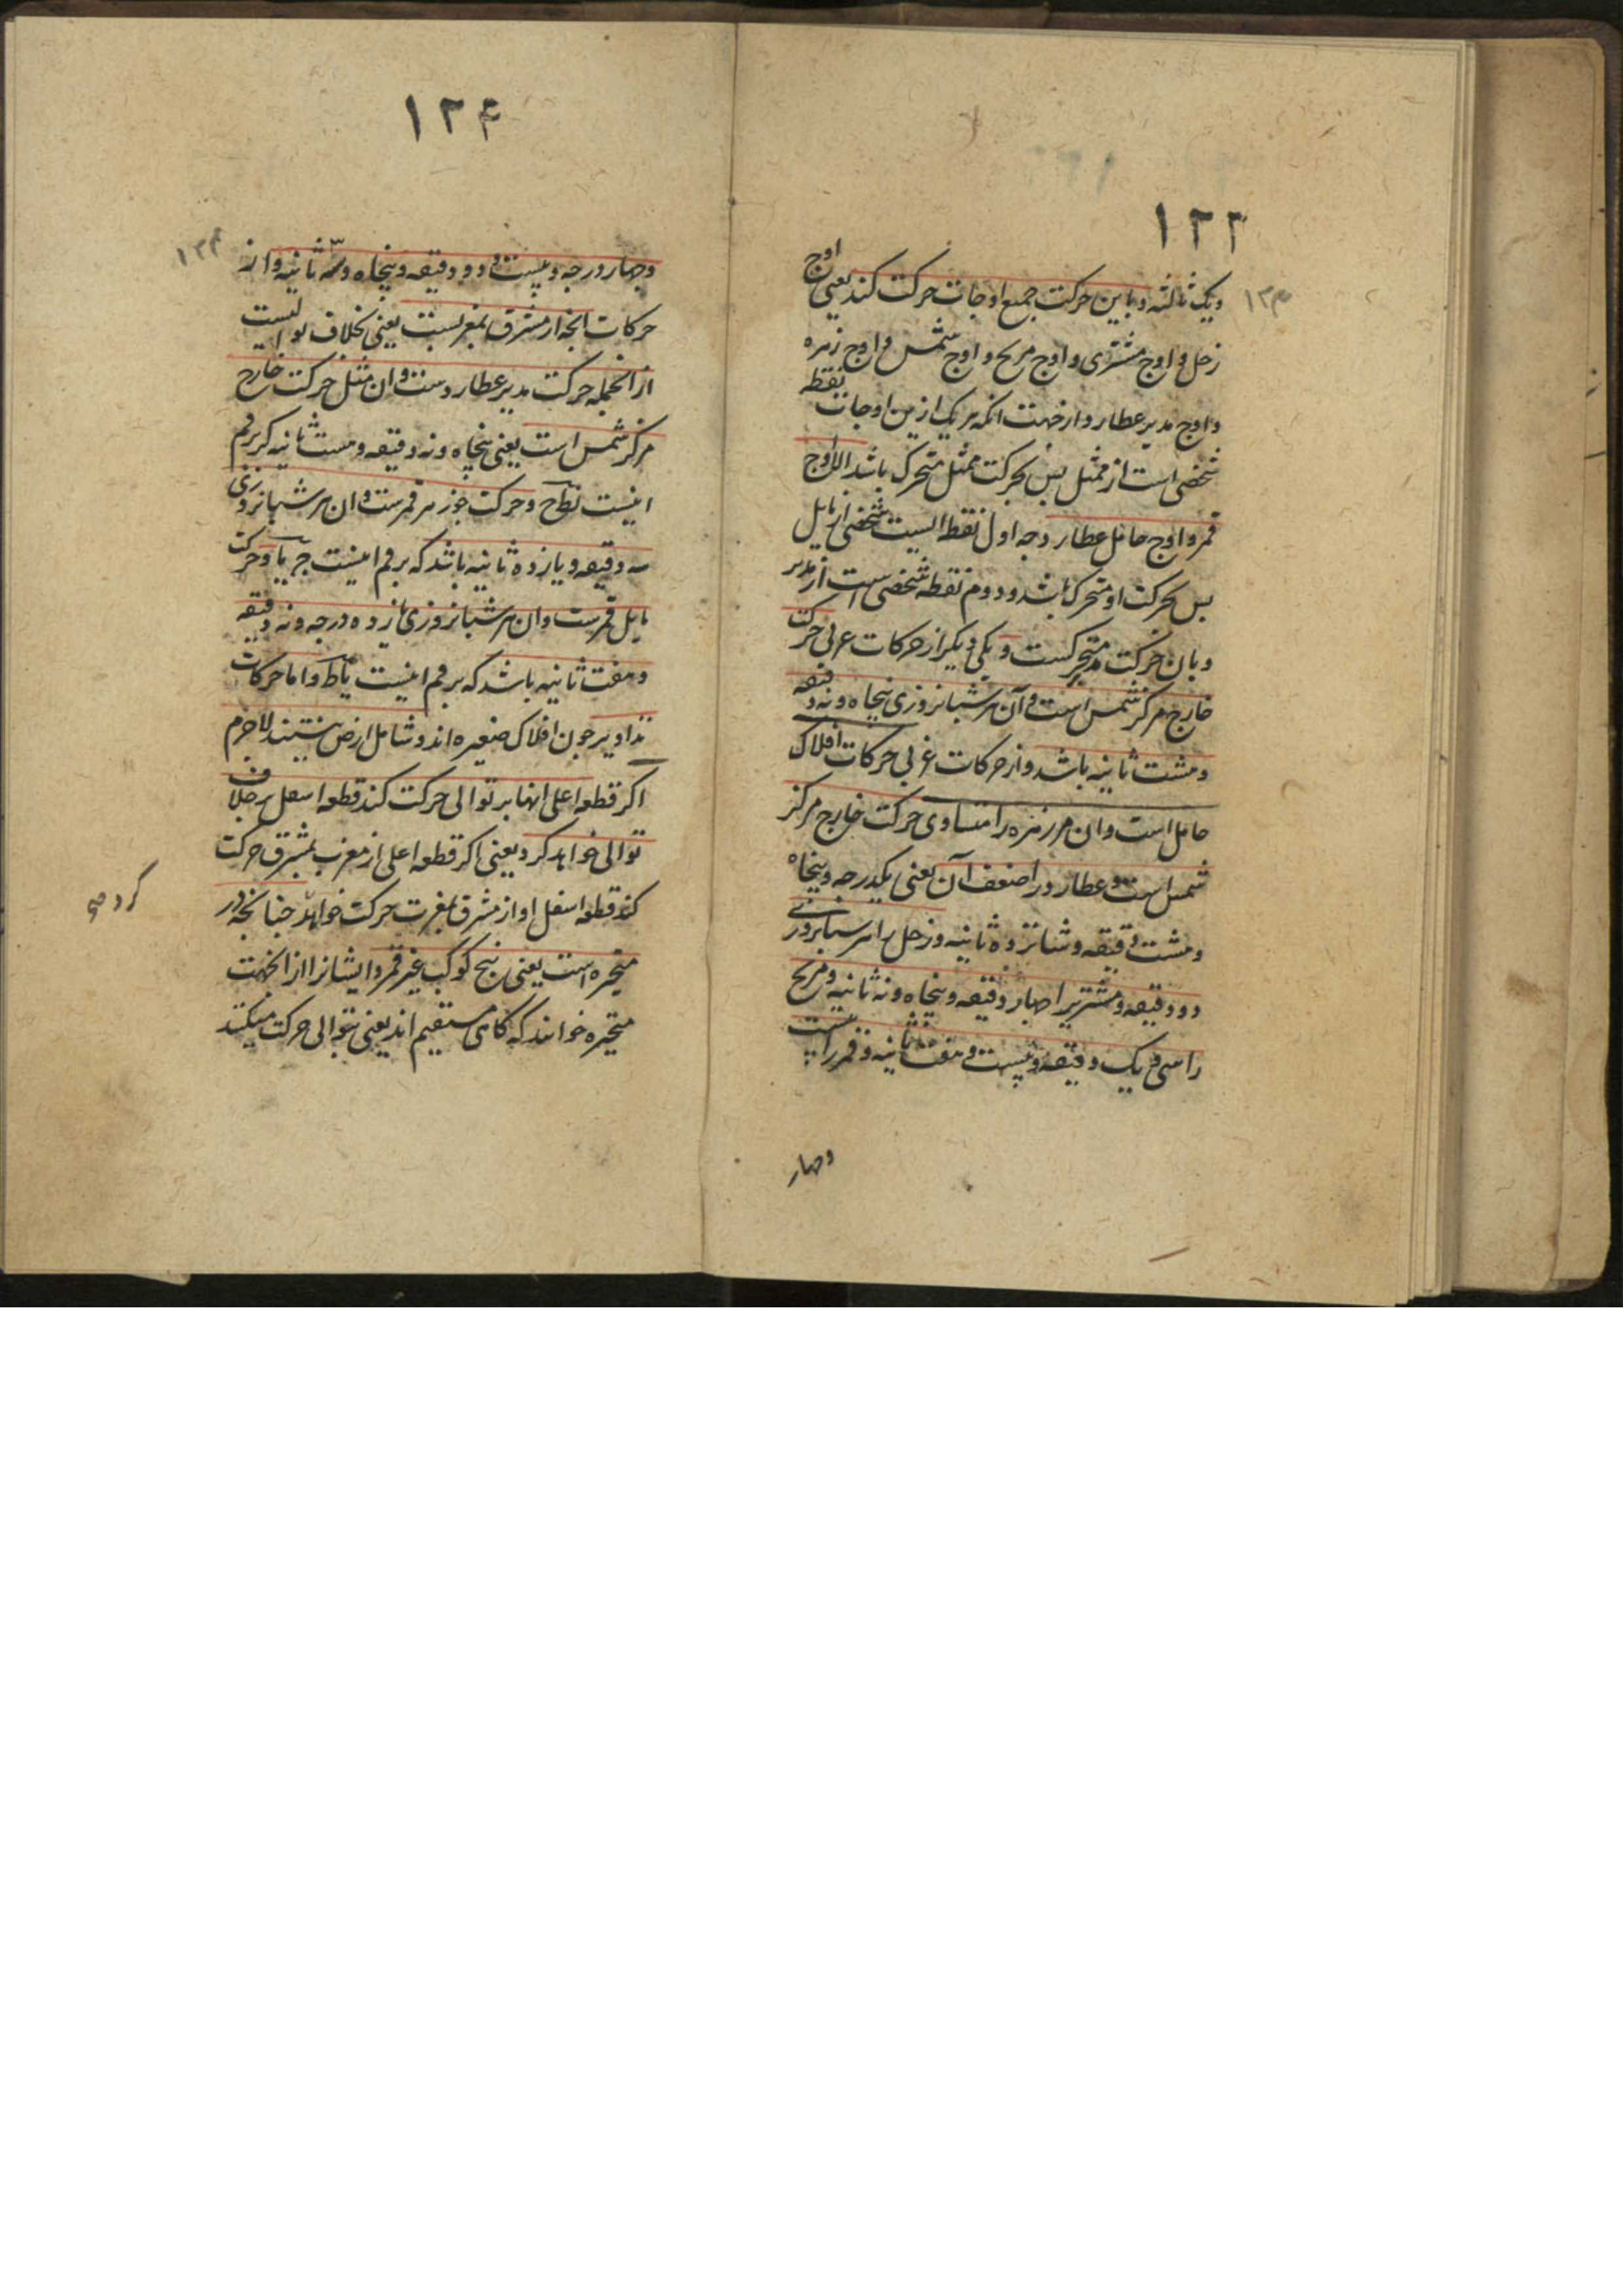 ۱۲۳
۱۲۳
ویک ثالثه وباین حرکت جمیع اوجات حرکت کند یعنی اوج
زحل و اوج مشتری و اوج مریخ و اوج شمس و اوج زهره
واوج مدیر عطارد از جهت انکه هر یک ازین اوجات نقطه
شخصی است از ممثل بس بحرکت ممثل متحرک باشد الا اوج
قمر و اوج حامل عطارد جه اول نقطه ایست شخصی از مایل
بس بحرکت او متحرک باشد ودوم نقطه شخصی است از مدیر
وبان حرکت متحرکست و یکی دیکر از حرکات غربی حرکت
خارج مرکز شمس است و آن هر شبانروزی پنجاه ونه دقیقه
وهشت ثانیه باشد واز حرکات غربی حرکات افلاک
حامل است وان مر زهره را متساوی حرکت خارج مرکز
شمس است و عطارد را ضعف آن یعنی یکدرجه وپنجاه
وهشت دقیقه وشانزده ثانیه وزحل را هر شبانروزی
دو دقیقه و مشتریرا جهار دقیقه وپنجاه ونه ثانیه و مریخ
را سی و یک دقیقه و بیست و هفت ثانیه و قمر را بیست
وجهار
۱۲۴
۱۲۴
وجهار درجه وبیست و دو دقیقه وپنجاه وسه ثانیه واز
حرکات انجه از مشرق بمغربست یعنی بخلاف توالیست
از انجمله حرکت مدیر عطاردست و ان مثل حرکت خارج
مرکز شمس است یعنی پنجاه ونه دقیقه وهشت ثانیه که برقم
اینست نط ح وحرکت جوزهر قمرست و ان هر شبانروزی
سه دقیقه ویازده ثانیه باشد که برقم اینست ج یا وحرکت
مایل قمرست وان هر شبانروزی یازده درجه ونه دقیقه
وهفت ثانیه باشد که برقم اینست یا ط ز واما حرکات
تداویر جون افلاک صغیره اند وشامل ارض نیستند لاجرم
اکر قطعه اعلی انها بر توالی حرکت کند قطعه اسفل بر خلاف
توالی خواهد کرد یعنی اکر قطعه اعلی از مغرب بمشرق حرکت
کند قطعه اسفل او از مشرق بمغرب حرکت خواهد جنانجه در
متحیره است یعنی پنج کوکب غیر قمر وایشانرا از انجهت
متحیره خوانند که کاهی مستقیم اند یعنی بتوالی حرکت میکنند
کرد صح